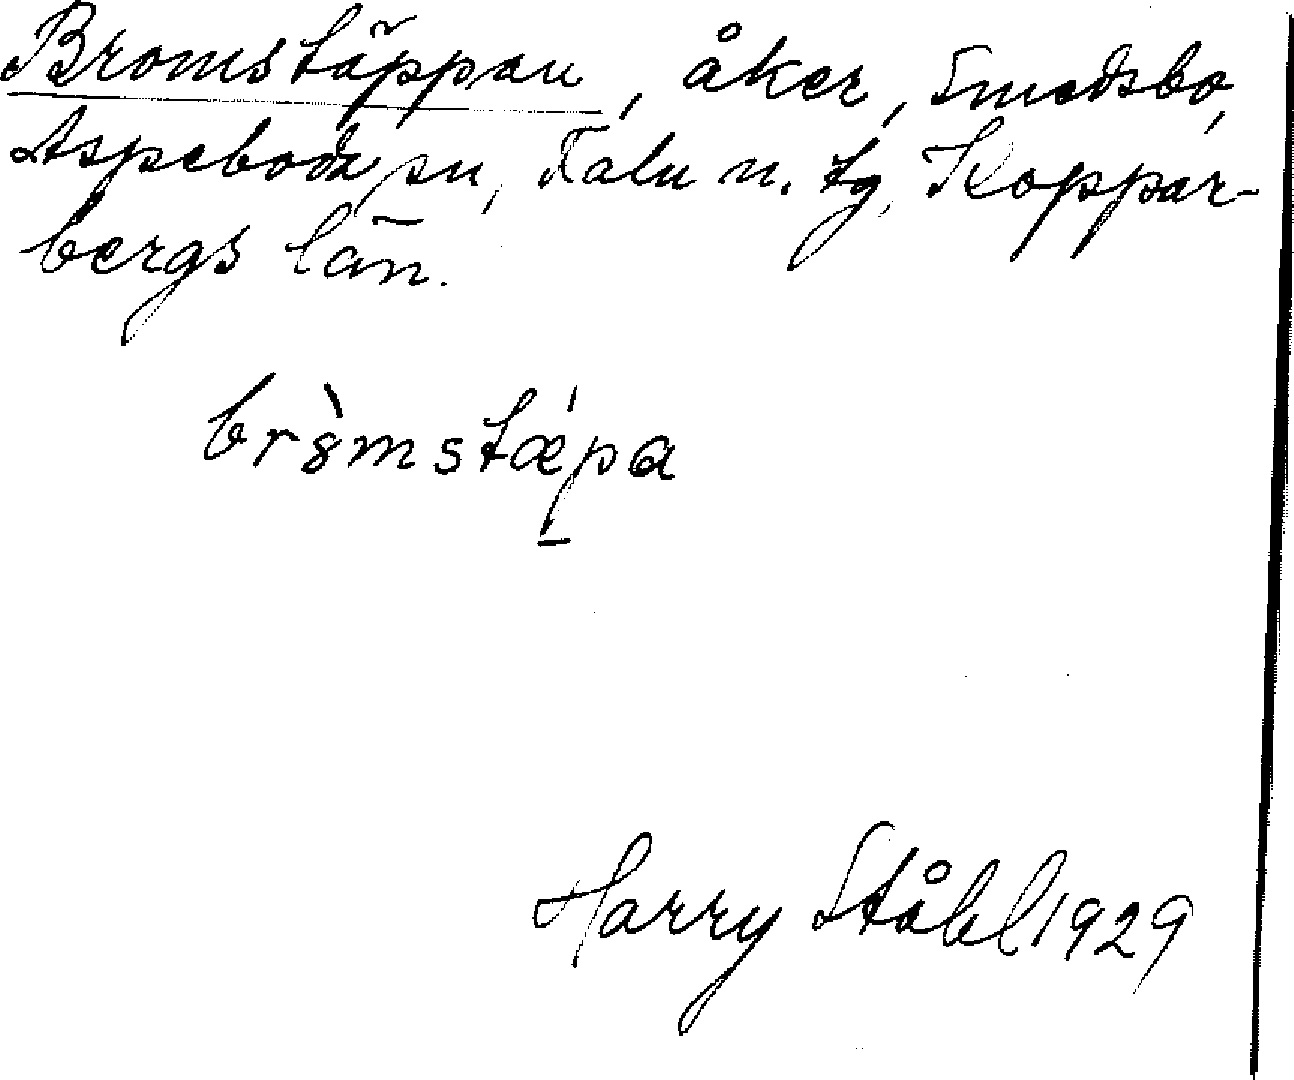 Bromstäppan, åker, Smedsbo,
Aspeboda sn, Falu n. tg, Koppar-
bergs län.
br8̀mstǽpa
Harry Ståhl 1929